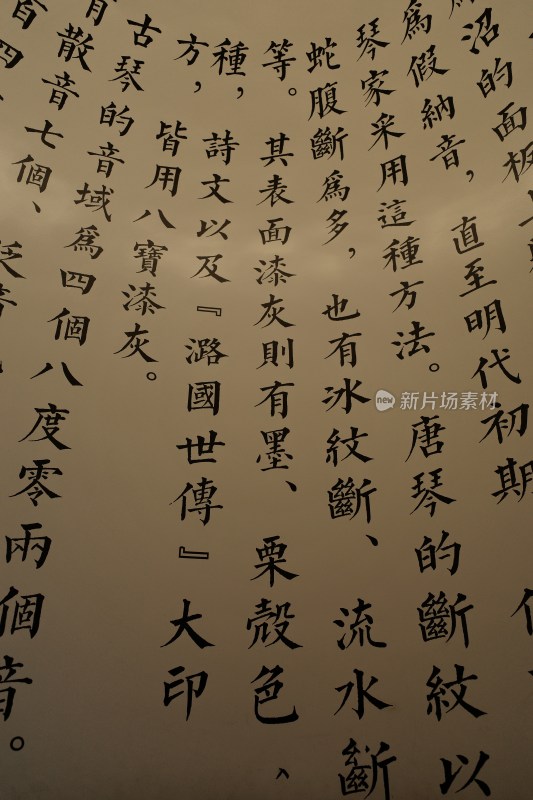 沼的面板上
爲假納音，直至明代初期
琴家采用這種方法。唐琴的斷紋以
蛇腹斷爲多，也有冰紋斷、流水斷
等。其表面漆灰則有墨、栗殼色、
種，詩文以及『潞國世傳』大印
方，皆用八寶漆灰。
古琴的音域爲四個八度零兩個音。
有散音七個、泛音
百四
new 新片场素材